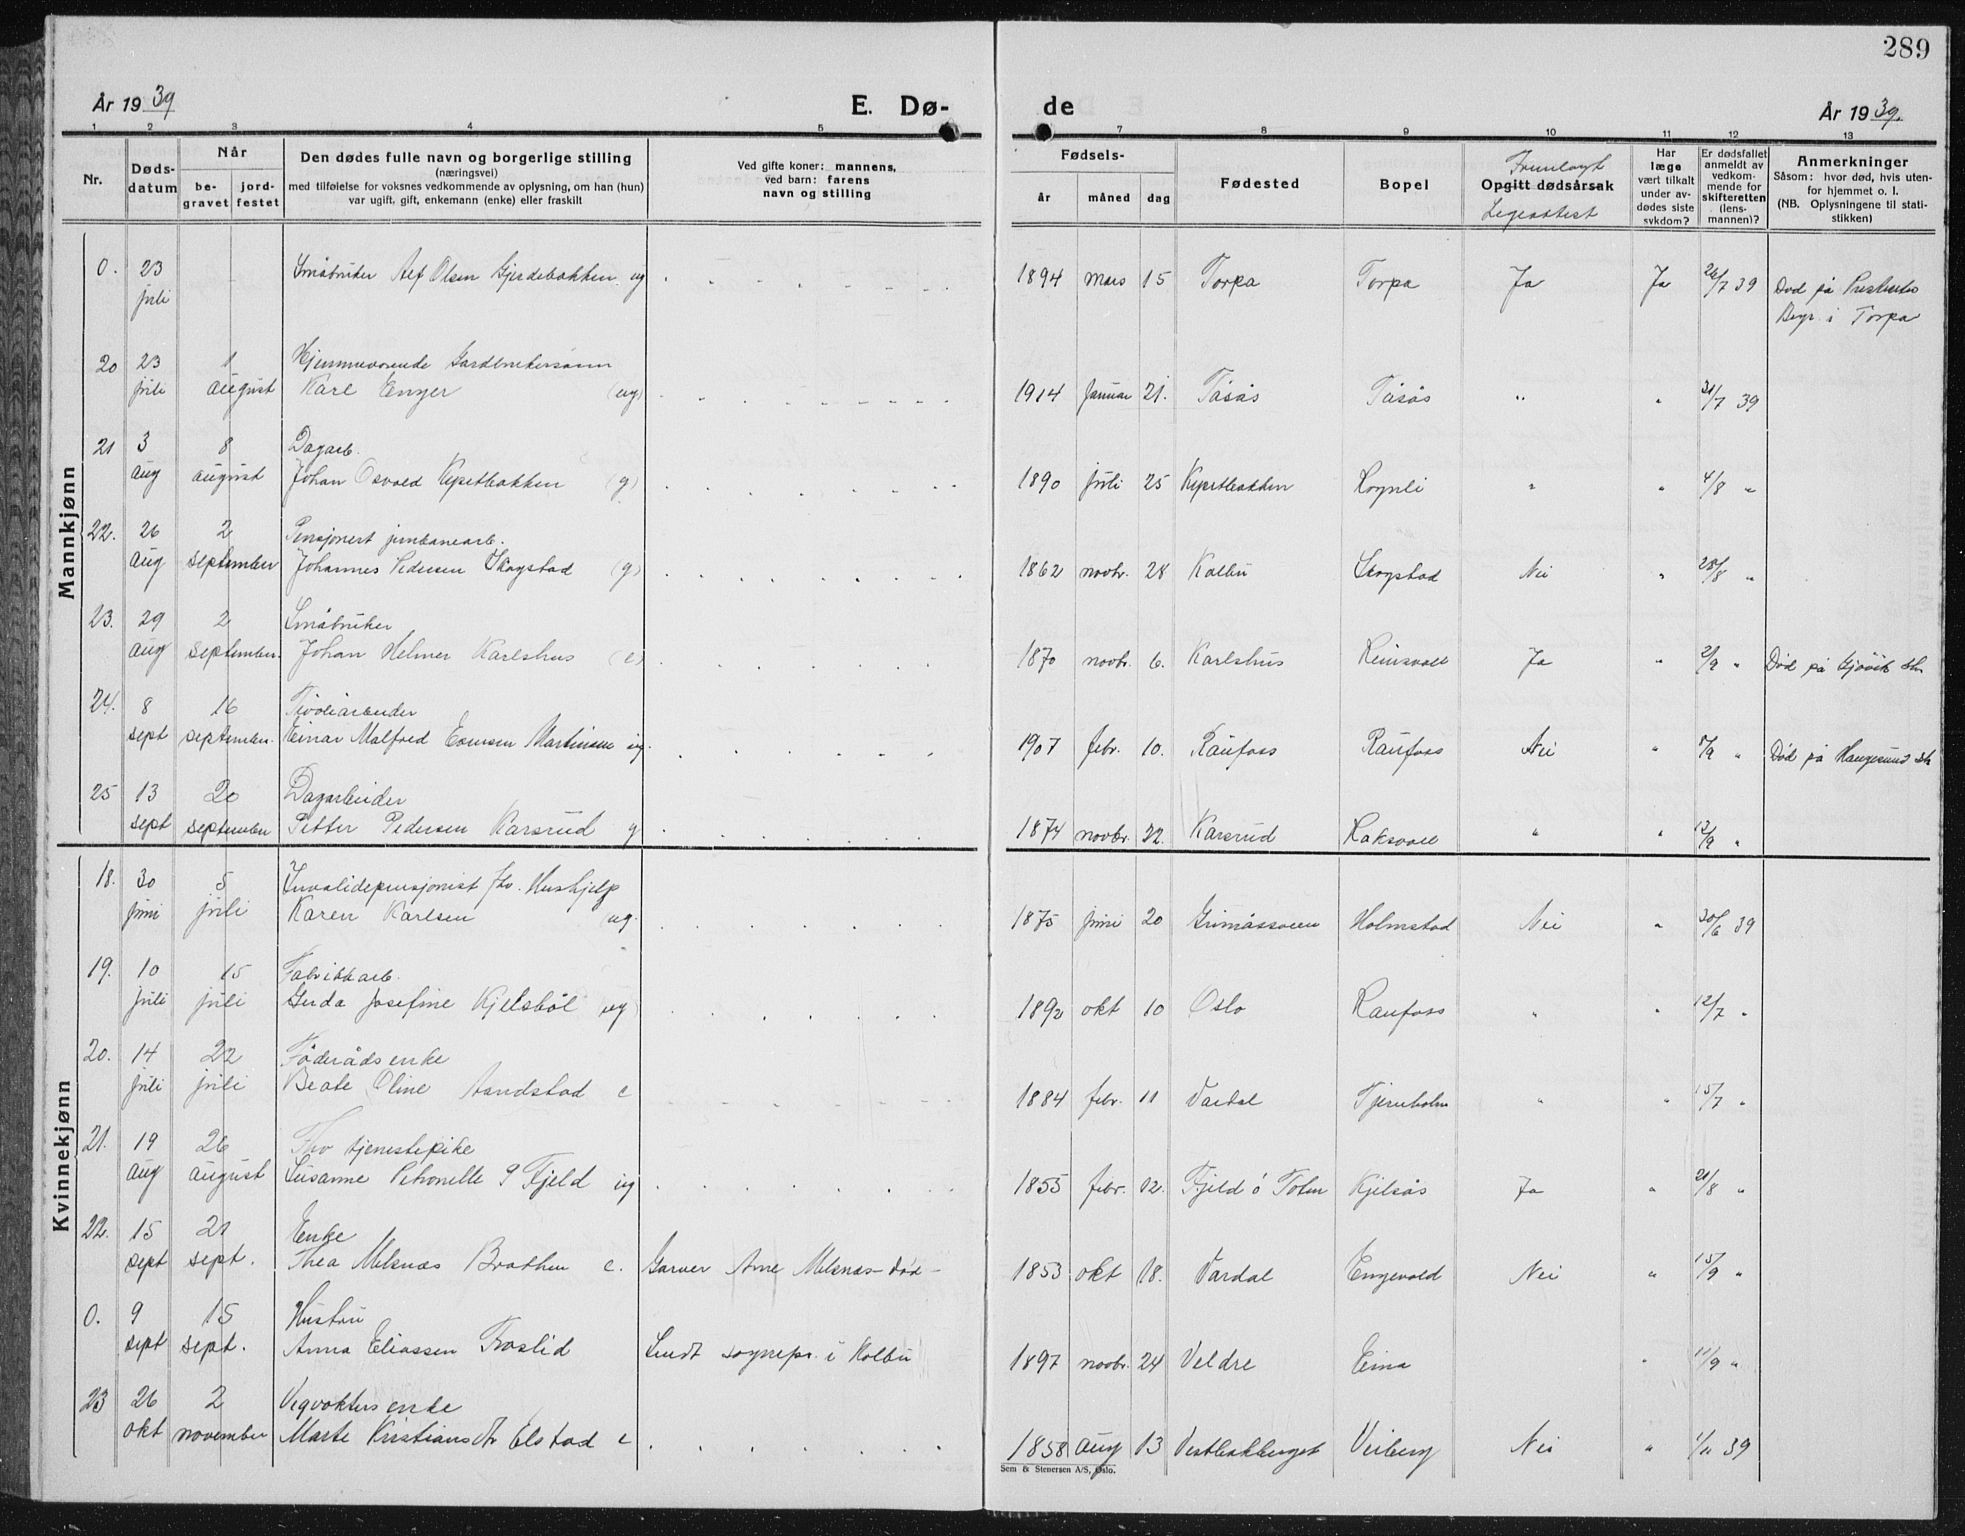 289
År 19 39
E. Dø-
de
År 19 39.
1 2 3 4 5 7 8 9 10 11 12 13
Nr.
Døds-
datum
Når
be-
gravet
jord-
festet
Den dødes fulle navn og borgerlige stilling
(næringsvei)
med tilføielse for voksnes vedkommende av oplysning, om han (hun)
var ugift, gift, enkemann (enke) eller fraskilt
Ved gifte koner: mannens,
ved barn: farens
navn og stilling
Fødsels-
år måned dag
Fødested
Bopel
Fremlagt
Opgitt dødsårsak
Legeattest
Har
læge
vært tilkalt
under av-
dødes siste
sykdom?
Er dødsfallet
anmeldt av
vedkom-
mende for
skifteretten
(lens-
mannen)?
Anmerkninger
Såsom: hvor død, hvis uten-
for hjemmet o. l.
(NB. Oplysningene til stati-
stikken)
Mannkjønn
0. 23 Småbruker Alf Olsen Gjerdebakken ug 1894 mars 15 Torpa Torpa Ja Ja 26/7 39 Død på
juli Begr. i Torpa
20 23 1 Hjemmeværende Gardbrukersønn
juli august Karl Enger (ug) 1914 Januar 21. Tåsås Tåsås " " 31/7 39
21 3 8 Dagarb.
aug august Johan Osvald (g) 1890 juli 25 " " 4/8 "
22. 26 2 Pensjonert jernbanearb.
aug september Johannes Pedersen Skogstad (g) 1862 novbr. 28 Kolbu Skogstad Nei " 28/8 "
23. 29 2 Småbruker
aug september. Johan Helmer Karlshus (e) 1870 novbr. 6. Karlshus Reinsvoll Ja " 2/9 " Død på Gjøvik sh
24. 8 16 Tivoliarbeider
sept september. Einar Malfred Martinsen ug. 1907 febr. 10. Raufoss Raufoss Nei " " Død på Haugesund sh
25 13 20 Dagarbeider
sept september Petter Pedersen Karsrud g 1874 novbr. 22. Karsrud " " 12/9 "
Kvinnekjønn
18. 30 5 Invalidepensjonist fhv. Hushjelp
juni juli Karen Karlsen ug. 1875 juni 20 Holmstad Nei " 30/6 39
19. 10 15 Fabrikkarb.
juli juli Gerda Josefine Kjelsbøl ug 1892 okt 10 Oslo Raufoss " " 12/7 "
20. 14 22 Føderådsenke
juli juli Beate Oline Aandstad e 1884 febr. 11 Vardal Tjernholm " " 15/7 "
21. 19 26 Fhv tjenestepike
aug august Susanne Petronelle Fjeld ug 1855 febr. 12. Fjeld Kjelsås Ja " 21/8 "
22. 15 21 Enke
sept sept. Thea Melsnæs Bråthen e. Garver Arne Melsnæs – død – 1853 okt 18. Vardal Engevold Nei " 15/9 "
0. 9 15 Hustru
sept sept. Anna Eliassen Froslid sognepr. i Kolbu 1897 novbr. 24 Veldre Eina " 11/9 "
23 26 2 Vegvoktersenke
okt november Marte Kristiansdtr Elstad e 1858 aug 13 Vestbakberget Veiberg Nei " 1/11 39
Sem & Stenersen A/S, Oslo.